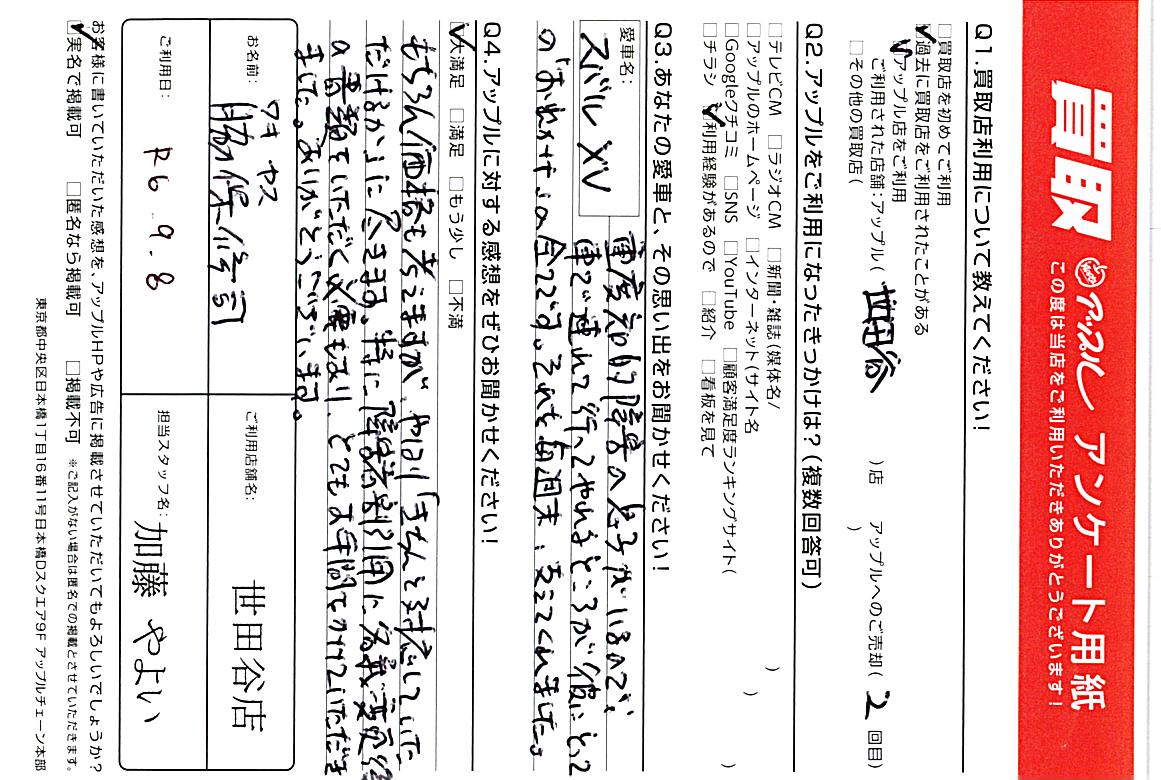 買取 アップル アンケート用紙
この度は当店をご利用いただきありがとうございます!
Q1.買取店利用について教えてください!
□買取店を初めてご利用
☑過去に買取店をご利用されたことがある
☑アップル店をご利用
ご利用された店舗:アップル( 世田谷 )店 アップルへのご売却( 2 回目)
□その他の買取店( )
Q2.アップルをご利用になったきっかけは?(複数回答可)
□テレビCM □ラジオCM □新聞・雑誌(媒体名/ )
□アップルのホームページ □インターネット(サイト名 )
□Googleクチコミ □SNS □YouTube □顧客満足度ランキングサイト( )
□チラシ ☑利用経験があるので □紹介 □看板を見て
Q3.あなたの愛車と、その思い出をお聞かせください!
愛車名:
スバル XV
重度知的障害の息子がいるので、
車で連れて行ってやれるところが彼にとって
の「おでかけ」の全てです。それを毎週末、支えてくれました。
Q4.アップルに対する感想をぜひお聞かせください!
☑大満足 □満足 □もう少し □不満
もちろん価格も考えますが、やはり「きちんと対応していた
だけるか」に尽きます。特に障害者利用に名義変更後
の書類をいただく必要もあり、とてもお手間をかけていただき
ました。ありがとうございます。
お名前:
ワキ ヤス
脇 保 修司
ご利用店舗名:
世田谷店
ご利用日:
R6.9.8
担当スタッフ名:
加藤 やよい
お客様に書いていただいた感想を、アップルHPや広告に掲載させていただいてもよろしいでしょうか?
☑実名で掲載可 □匿名なら掲載可 □掲載不可 ※ご記入がない場合は匿名での掲載とさせていただきます。
東京都中央区日本橋1丁目16番11号日本橋Dスクエア9F アップルチェーン本部